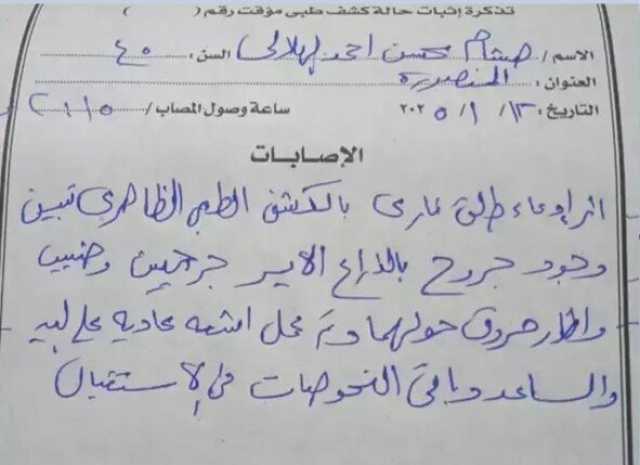 تذكرة إثبات حالة كشف طبى مؤقت رقم ( )
الاسم / هشام محسن احمد الهلالى السن : ٤٥
العنوان : المنصورة
التاريخ : ١٣ / ١ / ٢٠٢٥ ساعة وصول المصاب /
الإصابات
اثر إدعاء طلق نارى بالكشف الطبى الظاهرى تبين
وجود جروح بالذراع الايسر جرحين
حروق حولهما وتم عمل اشعه عاديه على
والساعد وباقى الفحوصات فى الاستقبال